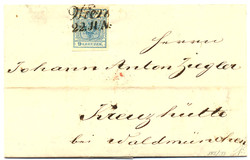 Wien
22. JUN:
9 KREUZER
Herrn
Johann Anton Ziegler
Kreuzhütte
bei Waldmünchen